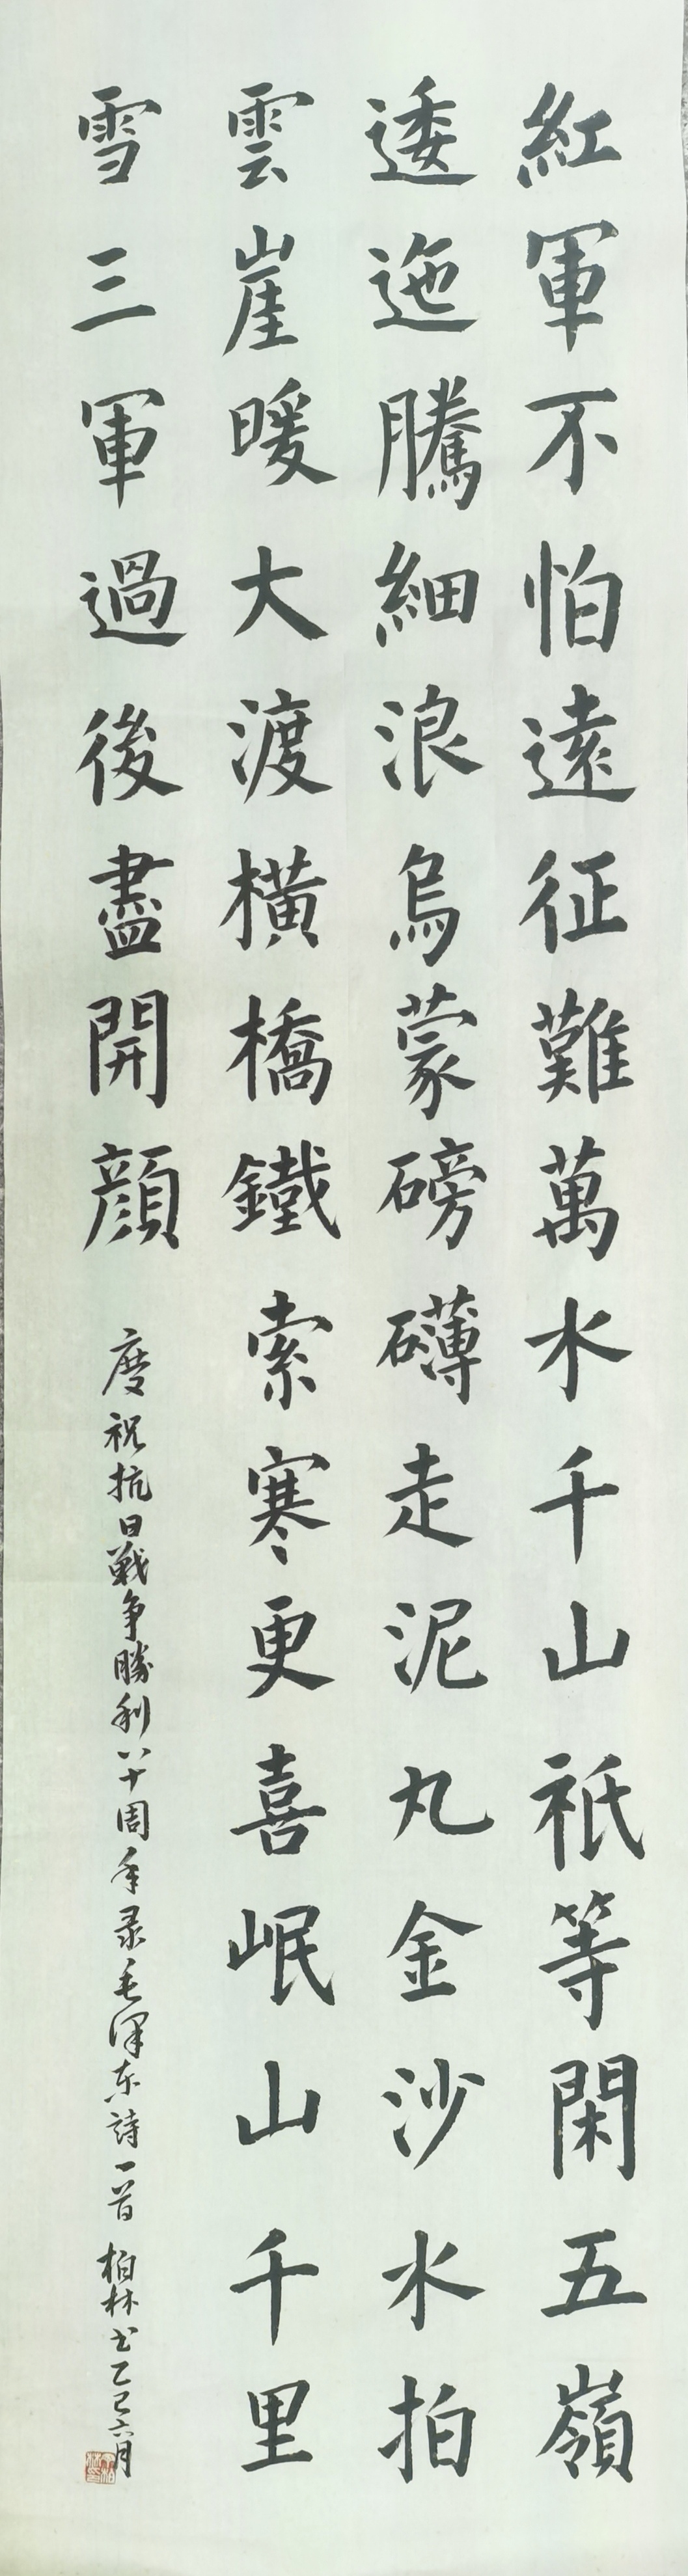 紅軍不怕遠征難萬水千山祇等閑五嶺
逶迤騰細浪烏蒙磅礴走泥丸金沙水拍
雲崖暖大渡橫橋鐵索寒更喜岷山千里
雪三軍過後盡開顔
慶祝抗日戰争勝利八十周年录毛泽东詩一首 柏林书乙巳六月